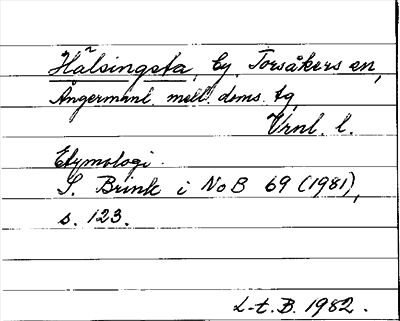 Hälsingsta, by, Torsåkers sn,
Ångermanl. mell. doms. tg,
Vrnl. l.
Etymologi.
S. Brink i NoB 69 (1981),
s. 123.
L-t. B. 1982.